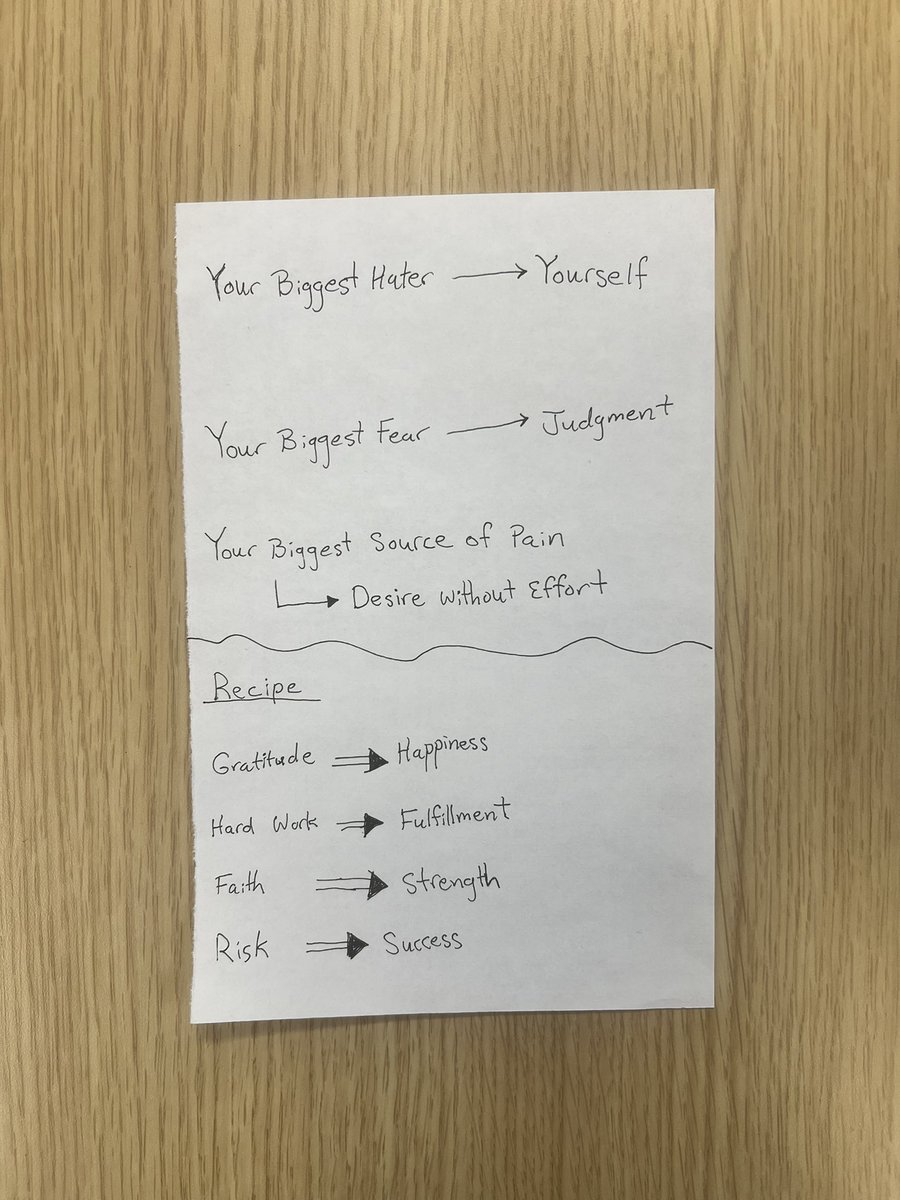 Your Biggest Hater → Yourself
Your Biggest Fear → Judgment
Your Biggest Source of Pain
↳ Desire without Effort
Recipe
Gratitude ⇒ Happiness
Hard Work ⇒ Fulfillment
Faith ⇒ Strength
Risk ⇒ Success